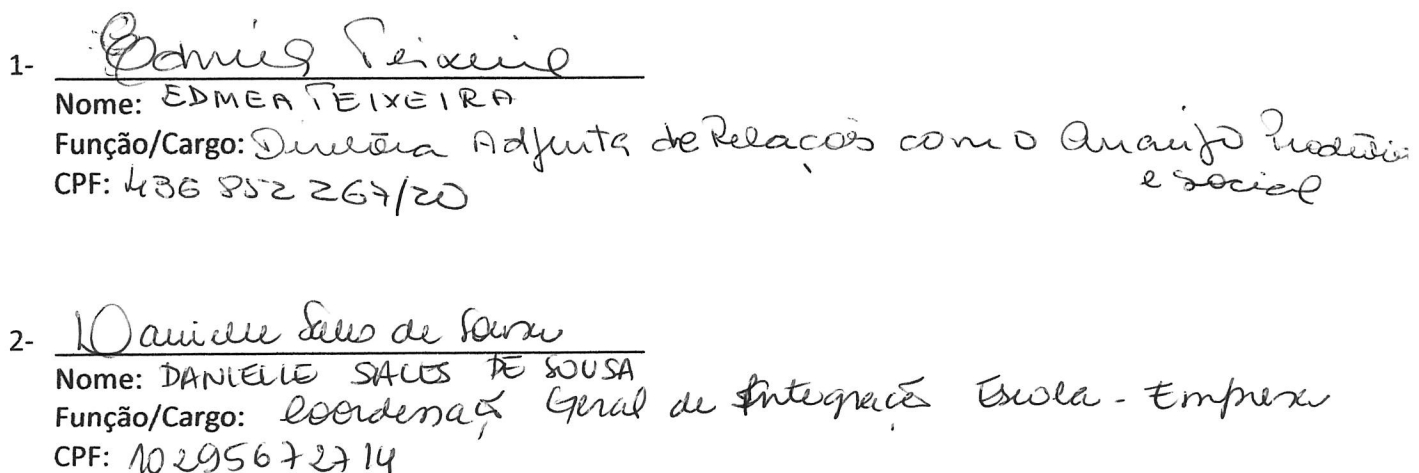 1- Edmea Teixeira
Nome: EDMEA TEIXEIRA
Função/Cargo: Diretora Adjunta de Relações com o Arranjo Produtivo
e social
CPF: 436 852 267/20
2- Danielle Sales de Sousa
Nome: DANIELLE SALES DE SOUSA
Função/Cargo: Coordenaçã Geral de Integração Escola - Empresa
CPF: 10295672714